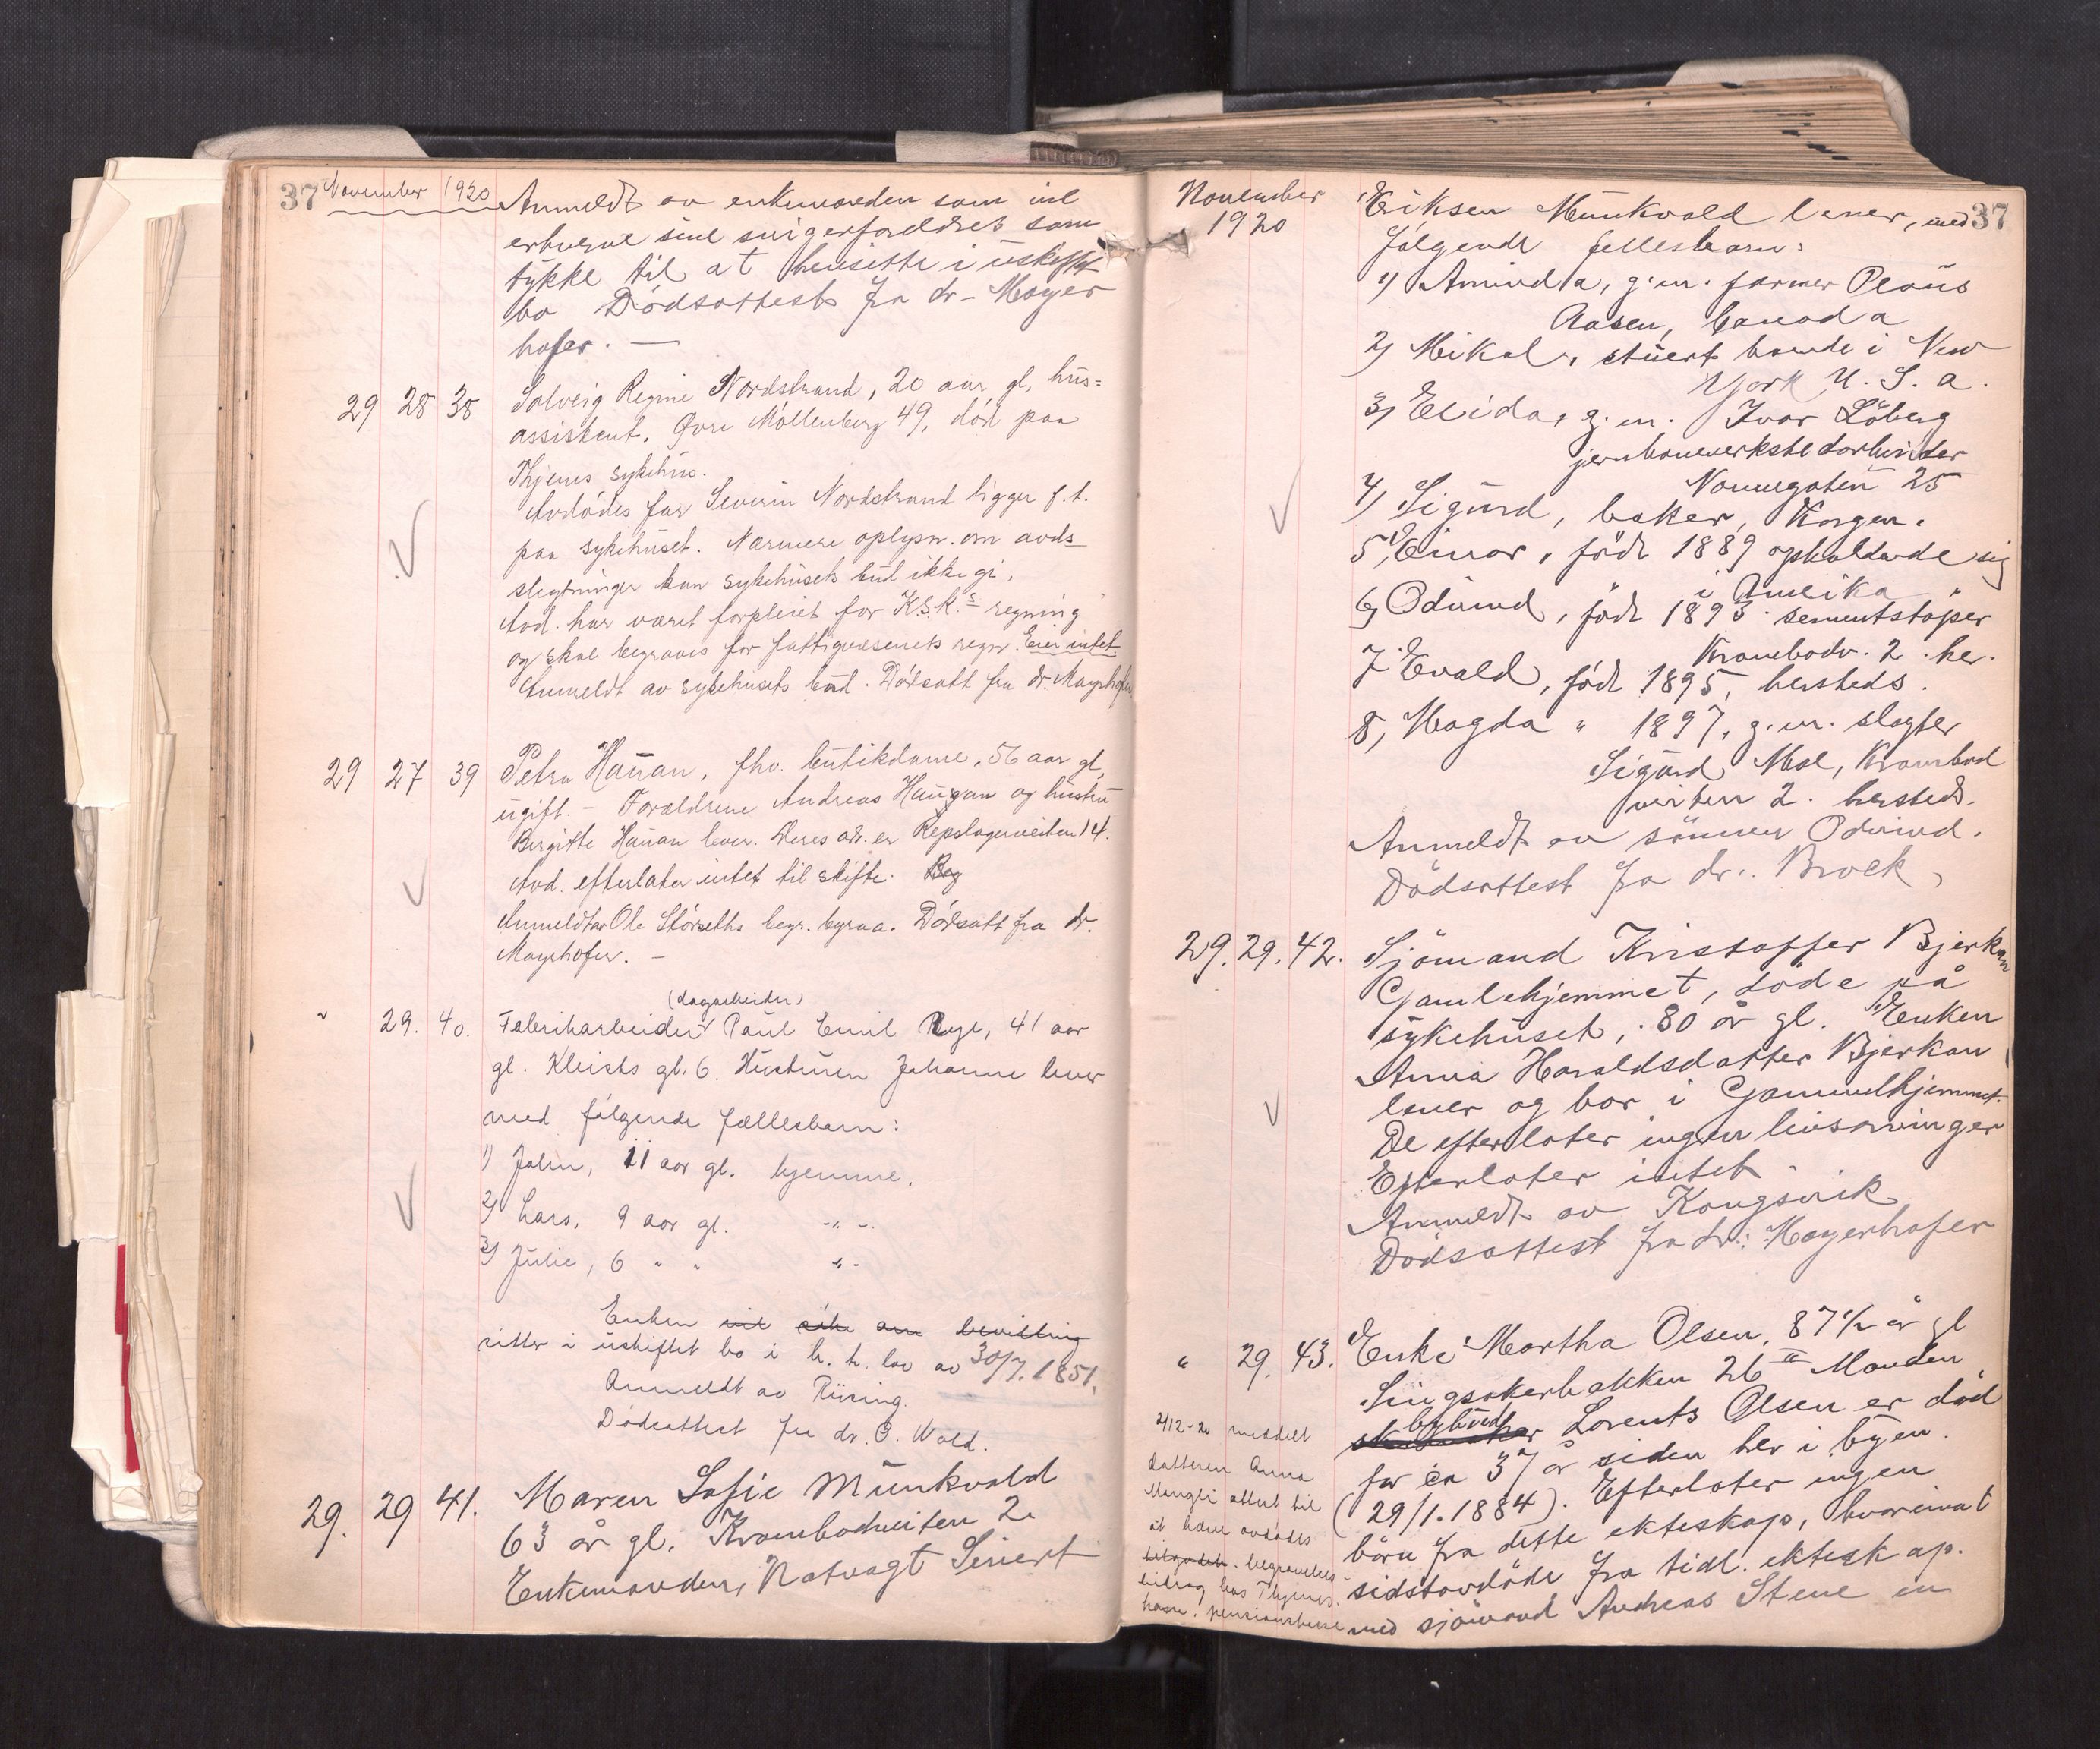 37 November 1920
Anmeldt av enkemanden som vil
erhverve sine svigerforeldres sam
tykke til at hensitte i uskiftet
bo Dödsattest fra dr. Mayer
hofer. —
29 28 38 Solveig Regine Nordstrand, 20 aar gl, hus=
assistent. Øvre Møllenberg 49, död paa
Thjems sykehus.
Avdödes far Severin Nordstrand ligger f.t.
paa sykehuset. Nærmere oplysn. om avds
slegtninger kan sykehusets bud ikke gi.
Avd. har været forpleiet for K.S.K.s regning
og skal begraves for fattigvæsenets regn. Eier intet.
Anmeldt av sykehusets bud. Dödsatt fra dr. Mayrhofer
29 27 39 Petra Hauan, fhv. butikdame, 56 aar gl,
ugift. - Forældrene Andreas Haugan og hustru
Birgitte Hauan lever. Deres adr. er Repslagerveiten 14.
Avd. efterlater intet til skifte. Beg
Anmeldt av Ole Störseths begr. byraa. Dödsatt fra dr.
Mayrhofer. —
(dagarbeider)
" 29. 40. Fabrikarbeider Paul Emil Rye, 41 aar
gl. Kleists gt. 6. Hustruen Johanne lever
med følgende fællesbarn:
1) John, 11 aar gl. hjemme.
2) Lars, 9 aar gl. -"-
3) Julie, 6 " " "-
Enken vil söke om bevilling
sitter i uskiftet bo i h. t. lov av 30/7.1851.
Anmeldt av Riising.
Dödsattest fra dr. O. Wold.
29. 29 41. Maren Sofie Munkvold
63 år gl. Krambodveiten 2.
Enkemanden, Natvagt Sivert
November
1920
37
Eriksen Munkvold lever, med
följende fellesbarn:
1) Aminda, g.m. farmer Peaus
Aasen, Canada
2) Mikal, stuert boende i New
York U.S.a.
3) Elida, g.m. Ivar Löberg
jernbaneverkstedarbeider
Nonnegaten 25
4) Sigurd, baker, Korgen.
5) Einar, födt 1889 opholdende sig
i Amerika
6) Odvind, födt 1893 sementstöper
Krambodv. 2. her.
7. Evald, födt 1895, hersteds.
8, Magda " 1897, g.m. slagter
Sigurd Moe, Krambod
veiten 2. hersteds.
Anmeldt av sönnen Odvind.
Dödsattest fra dr. Brock,
29. 29. 42. Sjömand Kristoffer Bjerkan
Gamlehjemmet, döde på
sykehuset, 80 år gl. Enken
Anna Haraldsdatter Bjerkan
lever og bor i Gammelhjemmet.
De efterlater ingen livsarvinger
Efterlater intet
Anmeldt av Kongsvik
Dödsattest fra dr.: Mayerhofer
" 29. 43. Enke Martha Olsen, 87 1/2 år gl
Singsakerbakken 26 II Manden
bybud
Lorents Olsen er död
for ca 37 år siden her i byen.
(29/1.1884). Efterlater ingen
börn fra dette ekteskap, hvorimot
sidstavdöde fra tidl. ekteskap.
med sjömand Andreas Stene en
2/12-20 meddelt
datteren Anna
attest til
at hæve avdödes
begravelses
bidrag hos Thjems.
havn. pensionskasse